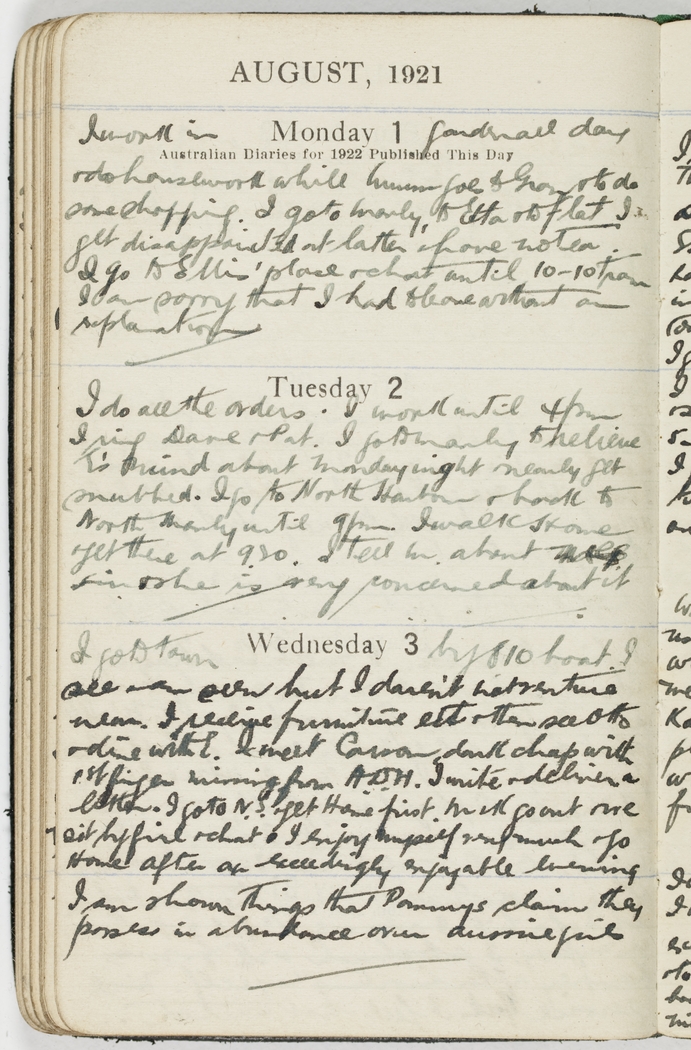 AUGUST, 1921
I work in Monday 1 garden all day
Australian Diaries for 1922 Published This Day
& do housework while mum goes to Gran's & to do
some shopping. I go to Manly, to Etta & to flat I
get disappointed at latter & have no tea.
I go to Ellis' place & chat until 10-10 pm
I am sorry that I had to leave without an
explanation
Tuesday 2
I do all the orders. I work until 4pm
I ring Dave & Pat. I go to Manly to relieve
K's mind about Monday night & nearly get
snubbed. I go to North Harbour & back to
North Manly until 9pm. I walk Home
& get there at 930. I tell m. about
sin & she is very concerned about it
I go to Town Wednesday 3 by 810 boat. I
see & am seen but I daren't venture
near. I receive furniture & then see Otto
& dine with E. I meet Carson, dark chap with
1st finger missing from A.D.H. I write & deliver a
letter. I go to N.S. get there first. go out & we
sit by fire & chat & I enjoy myself very much & go
Home after an exceedingly enjoyable evening
I am shown things that Pommys claim they
possess in abundance over aussie girls